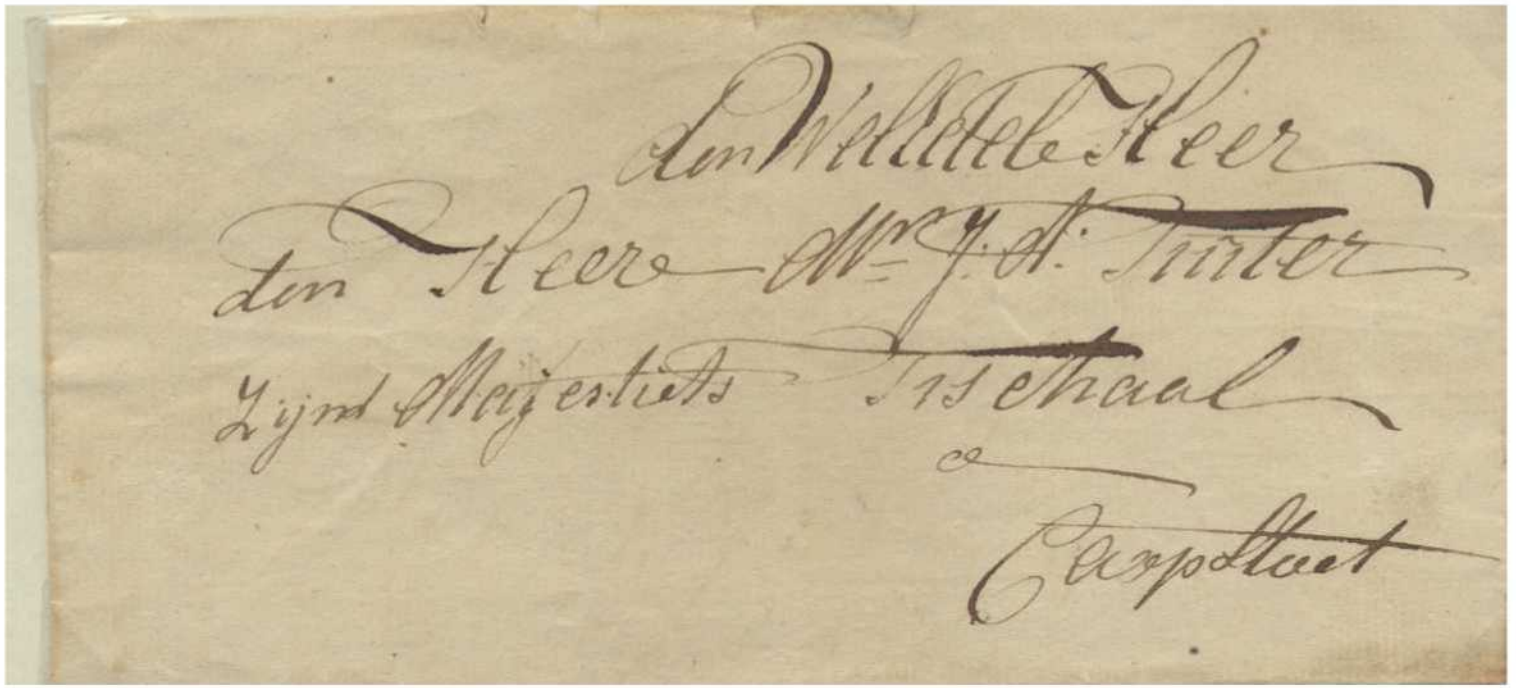 den WelEdele Heer
den Heere Mr J. A. Truter
Zijne Majestiets Fischaal
a
Caapstaet